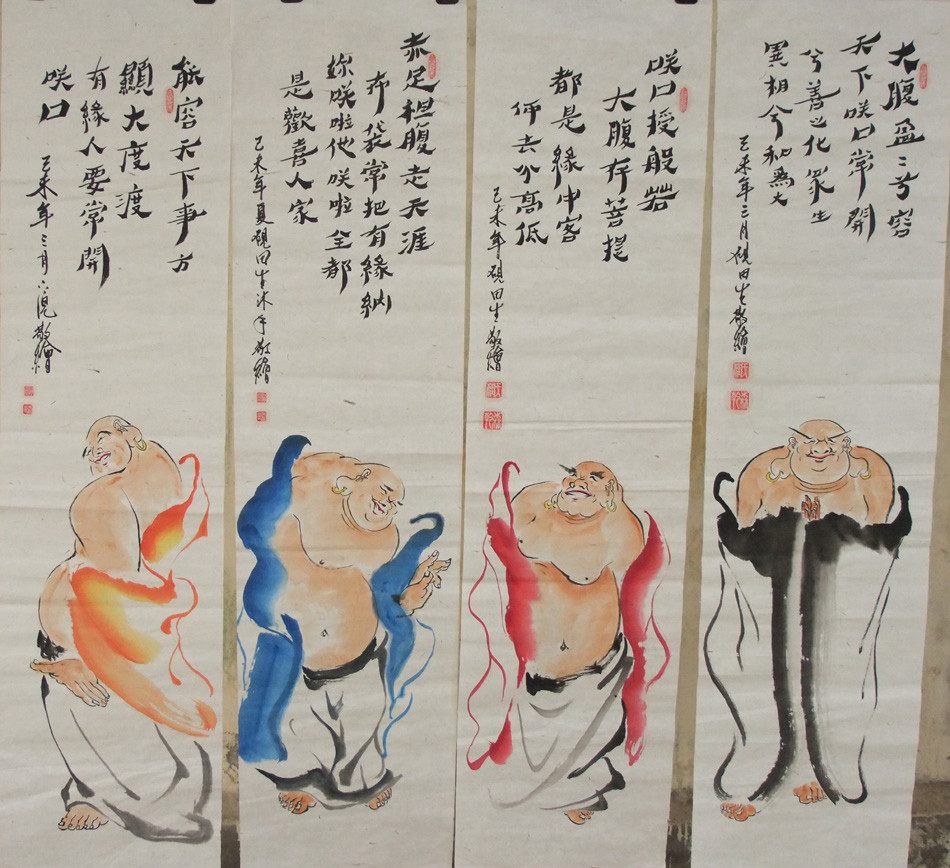 大腹盈〻兮容
天下咲口常開
兮善之化眾生
異相兮和為大
己未年三月硯田生敬繪
咲口授般若
大腹存菩提
都是緣中客
何去分高低
己未年硯田生敬繪
赤足袒腹走天涯
布袋常把有緣納
妳咲啦他咲啦全都
是歡喜人家
己未年夏硯田生沐手敬繪
能容天下事方
顯大度渡
有緣人要常開
咲口
己未年三月敬繪